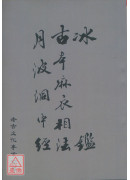 冰鑑
古本麻衣相法
月波洞中經